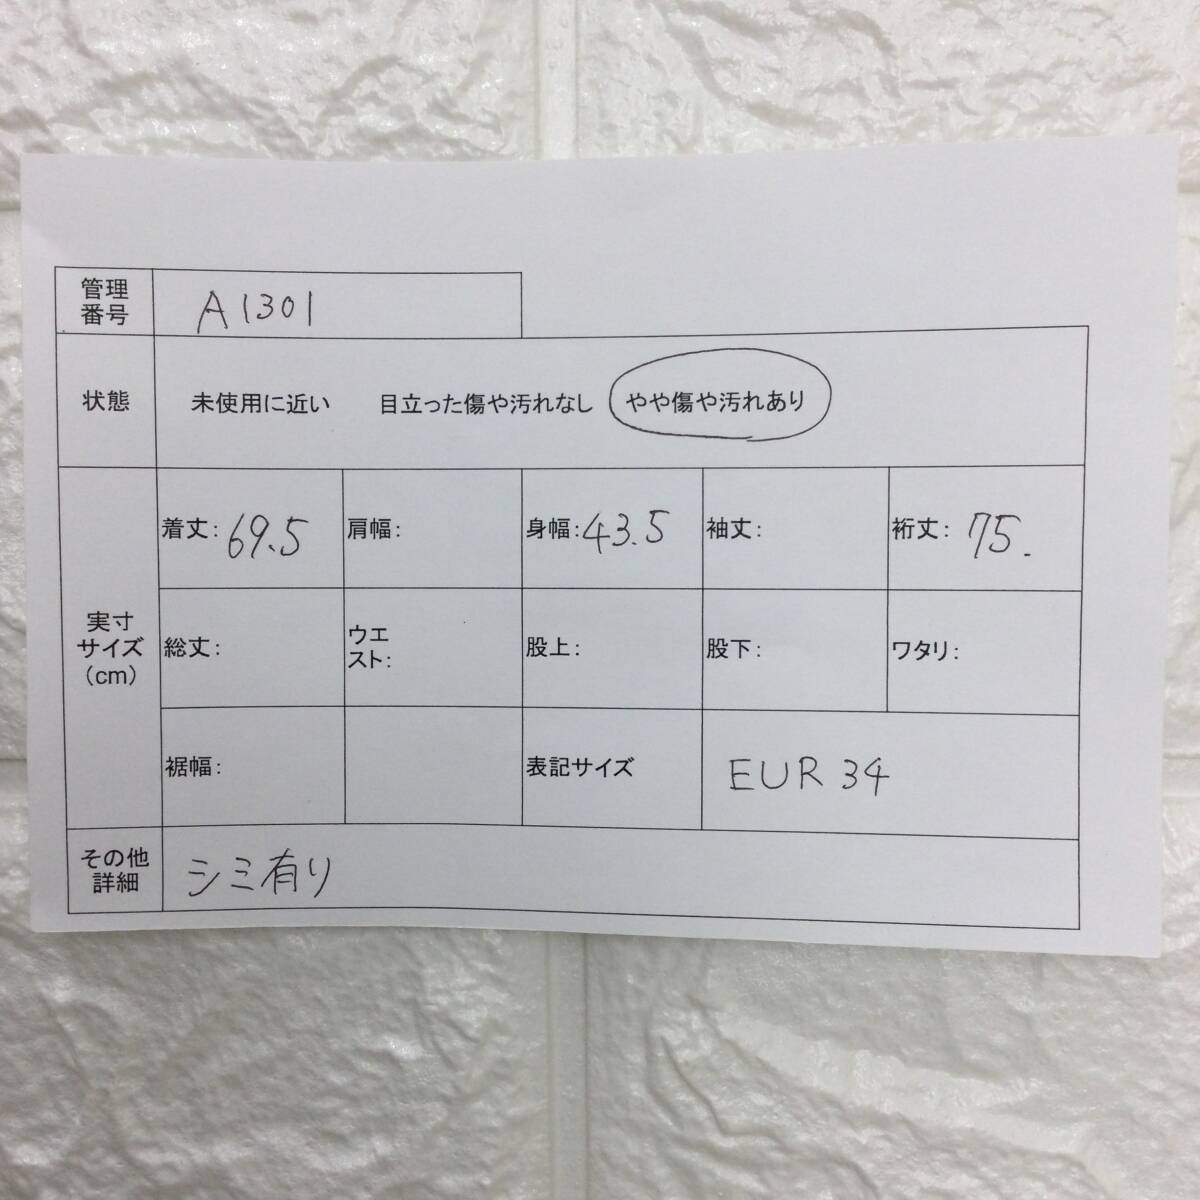 管理
番号
A1301
状態
未使用に近い 目立った傷や汚れなし やや傷や汚れあり
実寸
サイズ
(cm)
着丈: 69.5 肩幅: 身幅: 43.5 袖丈: 裄丈: 75.
総丈: ウエ
スト: 股上: 股下: ワタリ:
裾幅: 表記サイズ EUR 34
その他
詳細
シミ有り